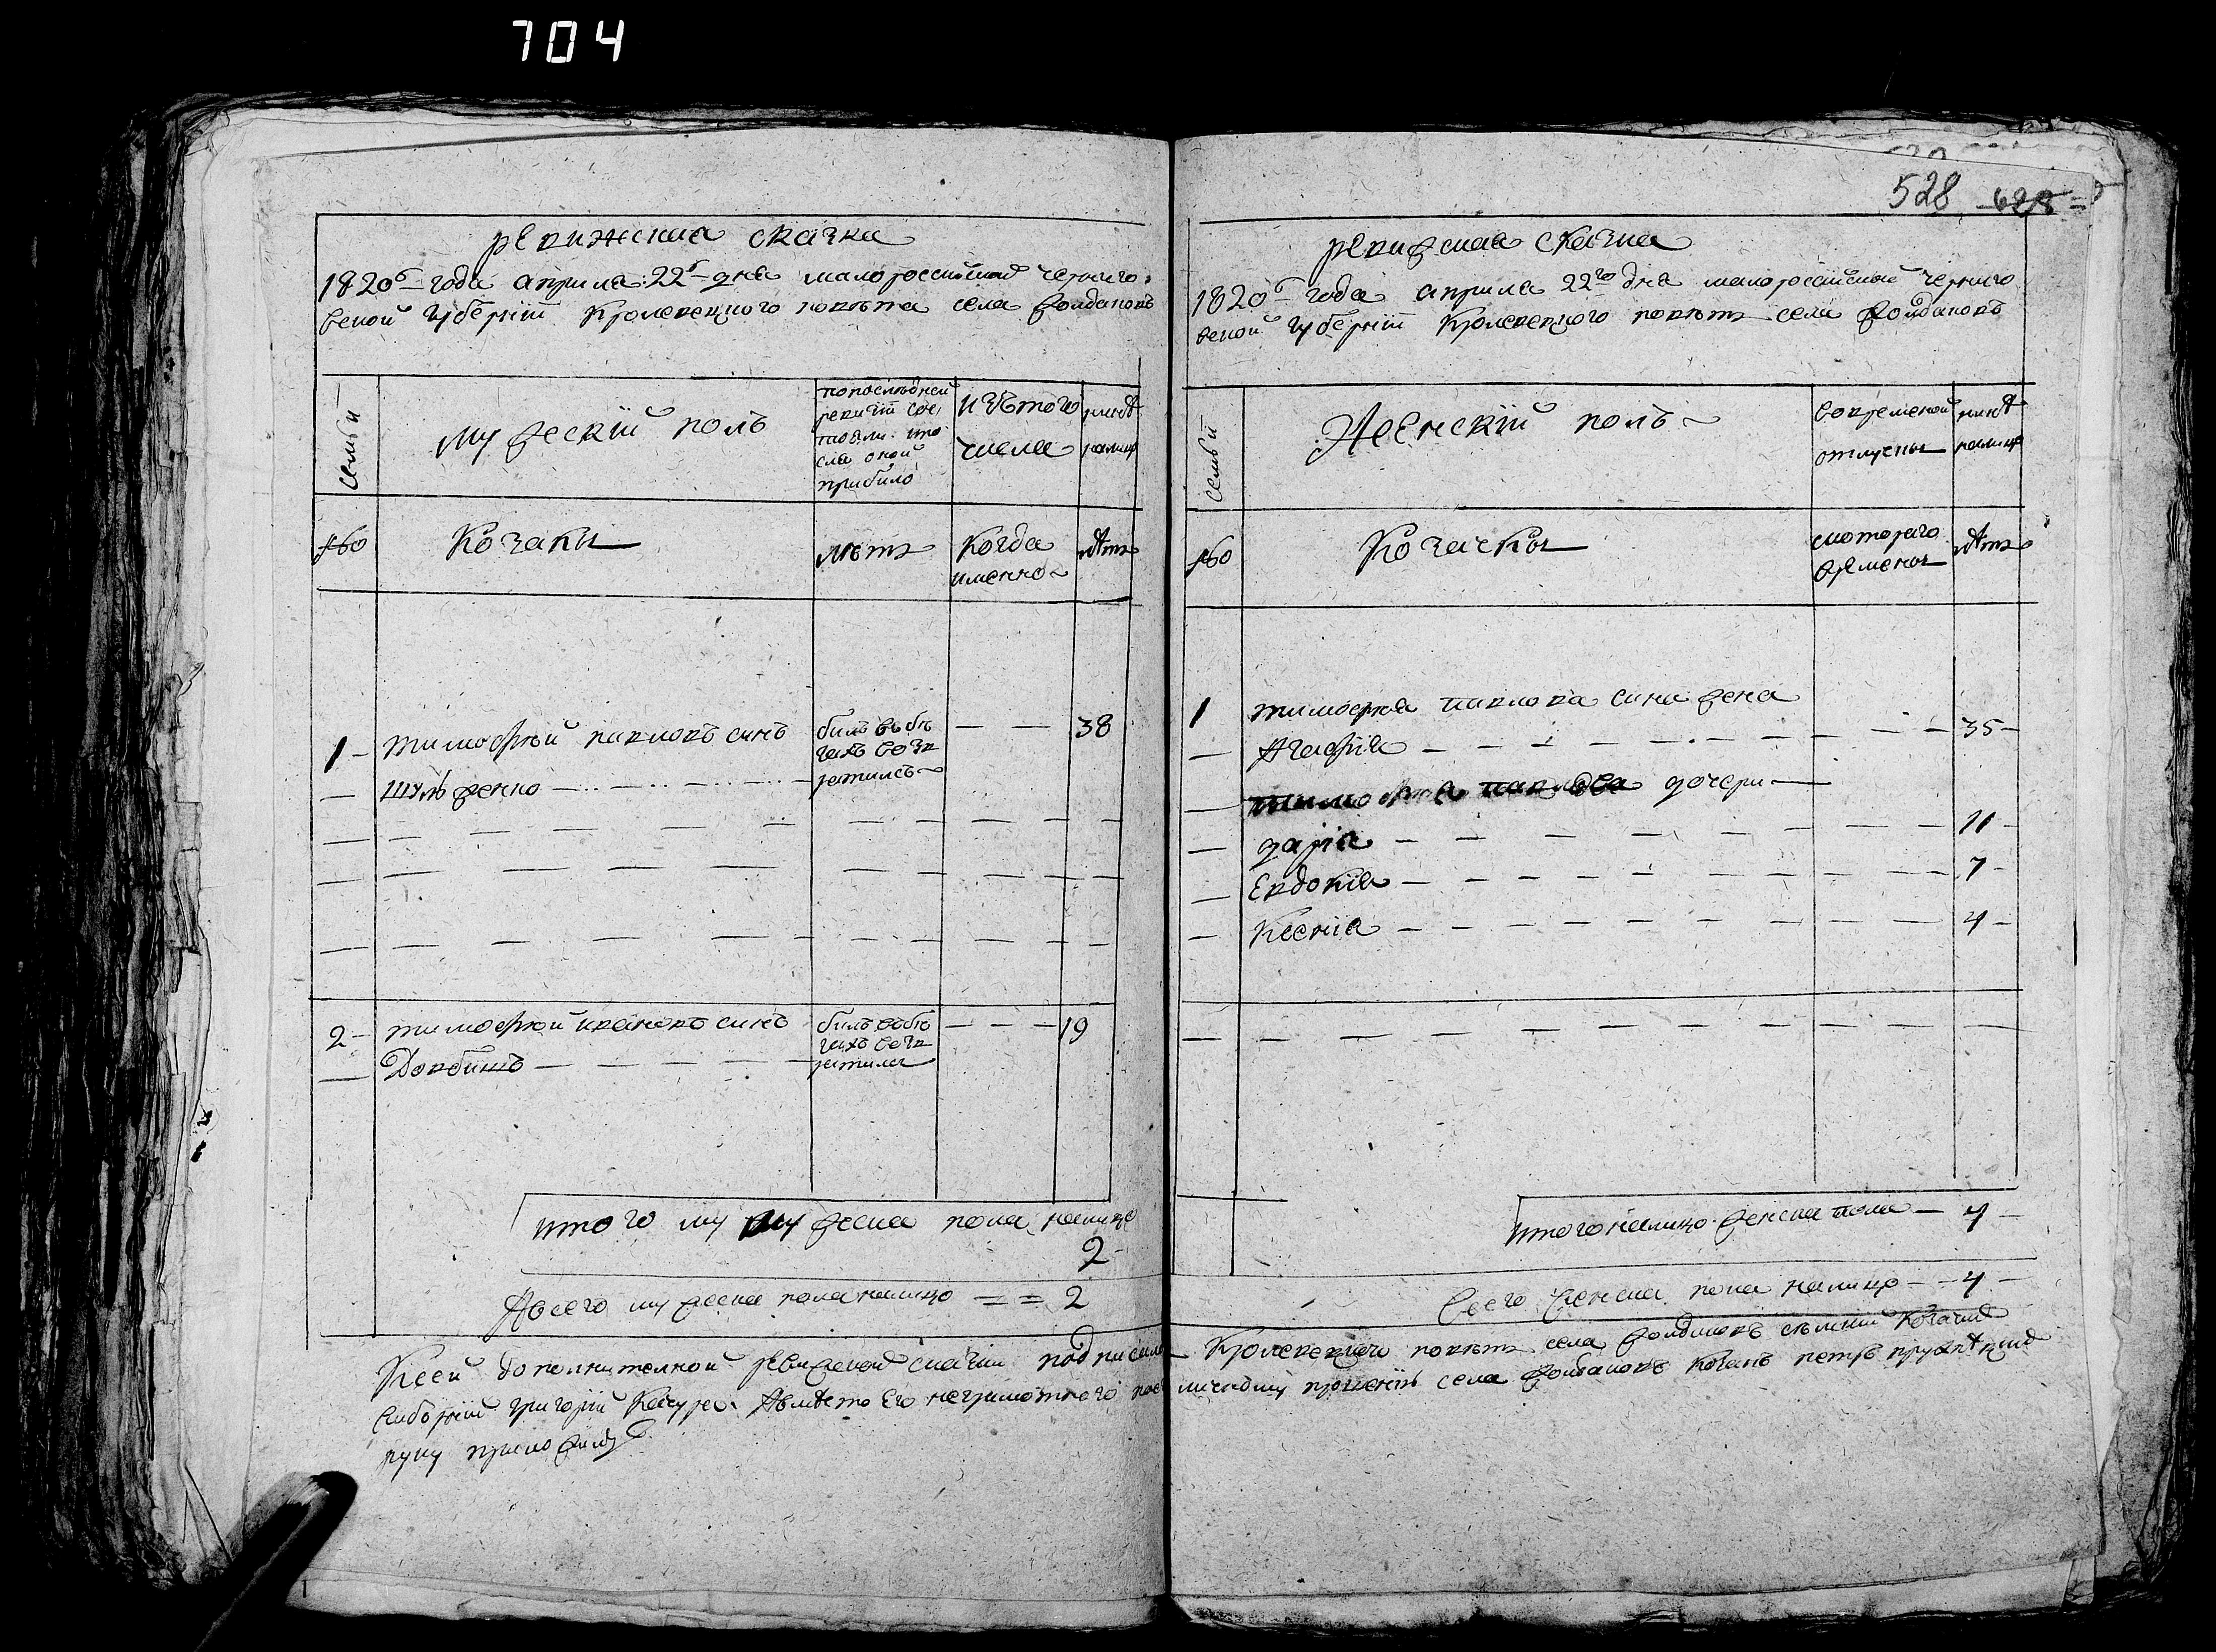 704
528 628
ревижская сказка
1820г года априля 22г дня малороссийской черниго
вской губернїи Кролевецкого повѣта села Жолдаковъ
семьи
мужескїй полъ
попослѣдней
ревизїи сос
тояли ипо
сле оной
прибило
изътого
числа
ннѣ
налицо
№60
Козаки
лѣтъ
Когда
именно
лѣтъ
1 тимофѣй павловъ синъ
билъ въбѣ
гахъ возв
ратилсь
38
Шулженко
2 тимофѣй ивановъ синъ
билъ вьбѣ
гахъ возв
ратилсь
19
Довбишъ
итого му мужеска пола налицо
2
Авсего мужеска пола налицо 2
ревижская сказка
1820г года априля 22го дня малороссийской черниго
вской губернїи Кролевецкого повѣта села Жолдаковъ
семьи
Женскїй полъ
вовременной
отлучки
ннѣ
налицо
№60
Козачки
скоторого
времены
лѣтъ
1 тимофѣя павлова сина жена
Агафїя 35
тимофѣя павлова дочери
дарїя 11
Евдокїя 7
Ксенїя 4
итого налицо женска пола 4
Всего женска пола налицо 4
Ксей дополнителной ревижской сказки подписался Кролевецкого повѣта села Жолдаковъ сѣлский Козачий
виборний григорїй Авмѣсто Его неграмотного села Жолдаковъ Козакъ петръ
руку приложилъ